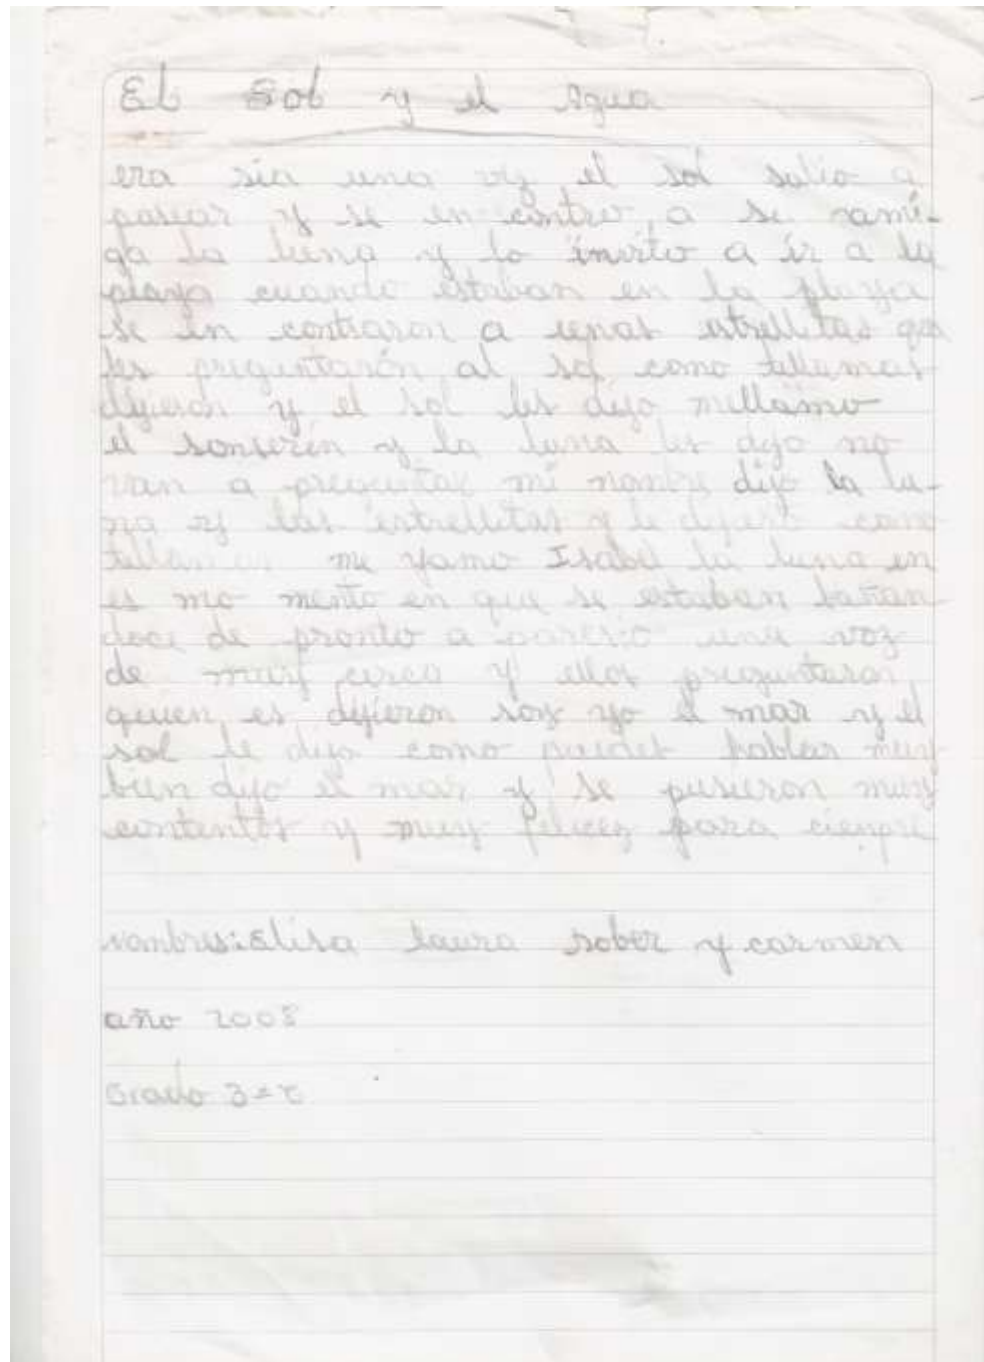 El Sol y el Agua
era sia una vez el sol salio a
pasear y se en contro a se rami-
ga la luna y lo invito a ir a la
playa cuando estaban en la playa
se in contraron a unas estrellitas que
les preguntarón al sol como tellamas
dijeron y el sol les dijo mellamo
el sonserin y la luna les dijo no
van a preguntar mi nombre dijo la lu-
na y las estrellitas y le dijero como
tellamas me yamo Isabel la luna en
es mo mento en que se estaban bañan
doce de pronto a parecio una voz
de muy cerca y ellos preguntaron
quien es dijieron soy yo el mar y el
sol le dijo como puedes hablar muy
bien dijo el mar y se pusieron muy
contentos y muy felicez para ciempre
nombres: Elisa laura sober y carmen
año 2008
Grado 3=c